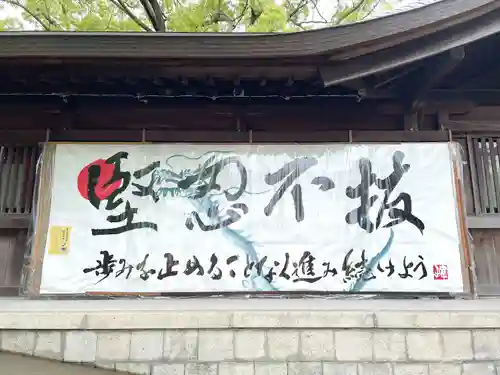 堅忍不抜
歩みを止めることなく進み続けよう